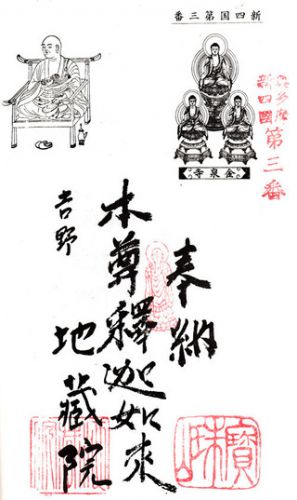 新四国第三番
金泉寺
奥多摩
新四國
第三番
奉納
本尊釋迦如来
吉野
地藏院
寶珠山